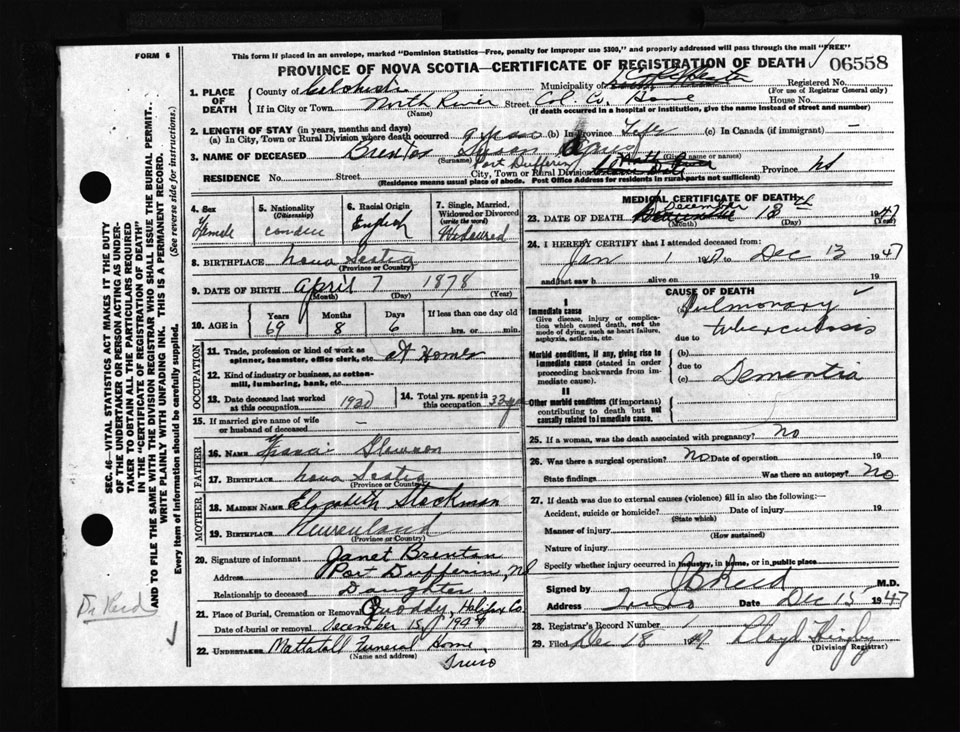 FORM 6
This form if placed in an envelope, marked "Dominion Statistics—Free, penalty for improper use $300," and properly addressed will pass through the mail "FREE"
PROVINCE OF NOVA SCOTIA—CERTIFICATE OF REGISTRATION OF DEATH 06558
1. PLACE OF DEATH
County of Colchester Municipality of Colchester Registered No.
(For use of Registrar General only)
If in City or Town North River Street Col. Co. Home House No.
(Name) (If death occurred in a hospital or institution, give the name instead of street and number)
2. LENGTH OF STAY (in years, months and days)
(a) In City, Town or Rural Division where death occurred (b) In Province Life (c) In Canada (if immigrant) —
3. NAME OF DECEASED Brenton Susan Agnes
(Surname) (Given name or names)
RESIDENCE No. Street Port Dufferin City, Town or Rural Division Province NS
(Residence means usual place of abode. Post Office Address for residents in rural parts not sufficient)
4. Sex Female
5. Nationality (Citizenship)
6. Racial Origin English
7. Single, Married, Widowed or Divorced (write the word) Widowed
8. BIRTHPLACE Nova Scotia
(Province or Country)
9. DATE OF BIRTH April 7 1878
(Month) (Day) (Year)
10. AGE in Years 69 Months 8 Days 6 If less than one day old hrs. or min.
OCCUPATION
11. Trade, profession or kind of work as spinner, teamster, office clerk, etc. at Home
12. Kind of industry or business, as cotton-mill, lumbering, bank, etc.
13. Date deceased last worked at this occupation 1930
14. Total yrs. spent in this occupation 33 yrs
15. If married give name of wife or husband of deceased —
FATHER
16. Name Francis
17. Birthplace Nova Scotia
(Province or Country)
MOTHER
18. Maiden Name Elizabeth Stockman
19. Birthplace
(Province or Country)
20. Signature of informant Janet Brenton
Address Port Dufferin, NS
Relationship to deceased Daughter
21. Place of Burial, Cremation or Removal Quoddy, Halifax Co.
Date of burial or removal December 15 1947
22. UNDERTAKER Mattatall Funeral Home
(Name and address) Truro
MEDICAL CERTIFICATE OF DEATH
23. DATE OF DEATH December 13 1947
(Month) (Day) (Year)
24. I HEREBY CERTIFY that I attended deceased from:
Jan 1 1947 to Dec 13 1947
and last saw h alive on 19
CAUSE OF DEATH
I
Immediate cause
Give disease, injury or complication which caused death, not the mode of dying, such as heart failure, asphyxia, asthenia, etc.
(a) Pulmonary tuberculosis
due to
Morbid conditions, if any, giving rise to immediate cause (stated in order proceeding backwards from immediate cause).
(b)
due to
(c) Dementia
II
Other morbid conditions (if important) contributing to death but not causally related to immediate cause.
25. If a woman, was the death associated with pregnancy? No
26. Was there a surgical operation? No Date of operation 19
State findings Was there an autopsy? No
27. If death was due to external causes (violence) fill in also the following:—
Accident, suicide or homicide? Date of injury 19
(State which)
Manner of injury
(How sustained)
Nature of injury
Specify whether injury occurred in industry, in home, or in public place
Signed by J B Reid M.D.
Address Truro Date Dec 15 1947
28. Registrar's Record Number
29. Filed Dec 18 1947 Lloyd
(Division Registrar)
SEC. 46—VITAL STATISTICS ACT MAKES IT THE DUTY
OF THE UNDERTAKER OR PERSON ACTING AS UNDER-
TAKER TO OBTAIN ALL THE PARTICULARS REQUIRED
IN THE "CERTIFICATE OF REGISTRATION OF DEATH"
AND TO FILE THE SAME WITH THE DIVISION REGISTRAR WHO SHALL ISSUE THE BURIAL PERMIT.
WRITE PLAINLY WITH UNFADING INK. THIS IS A PERMANENT RECORD.
Every item of information should be carefully supplied. (See reverse side for instructions.)
Dr Reid